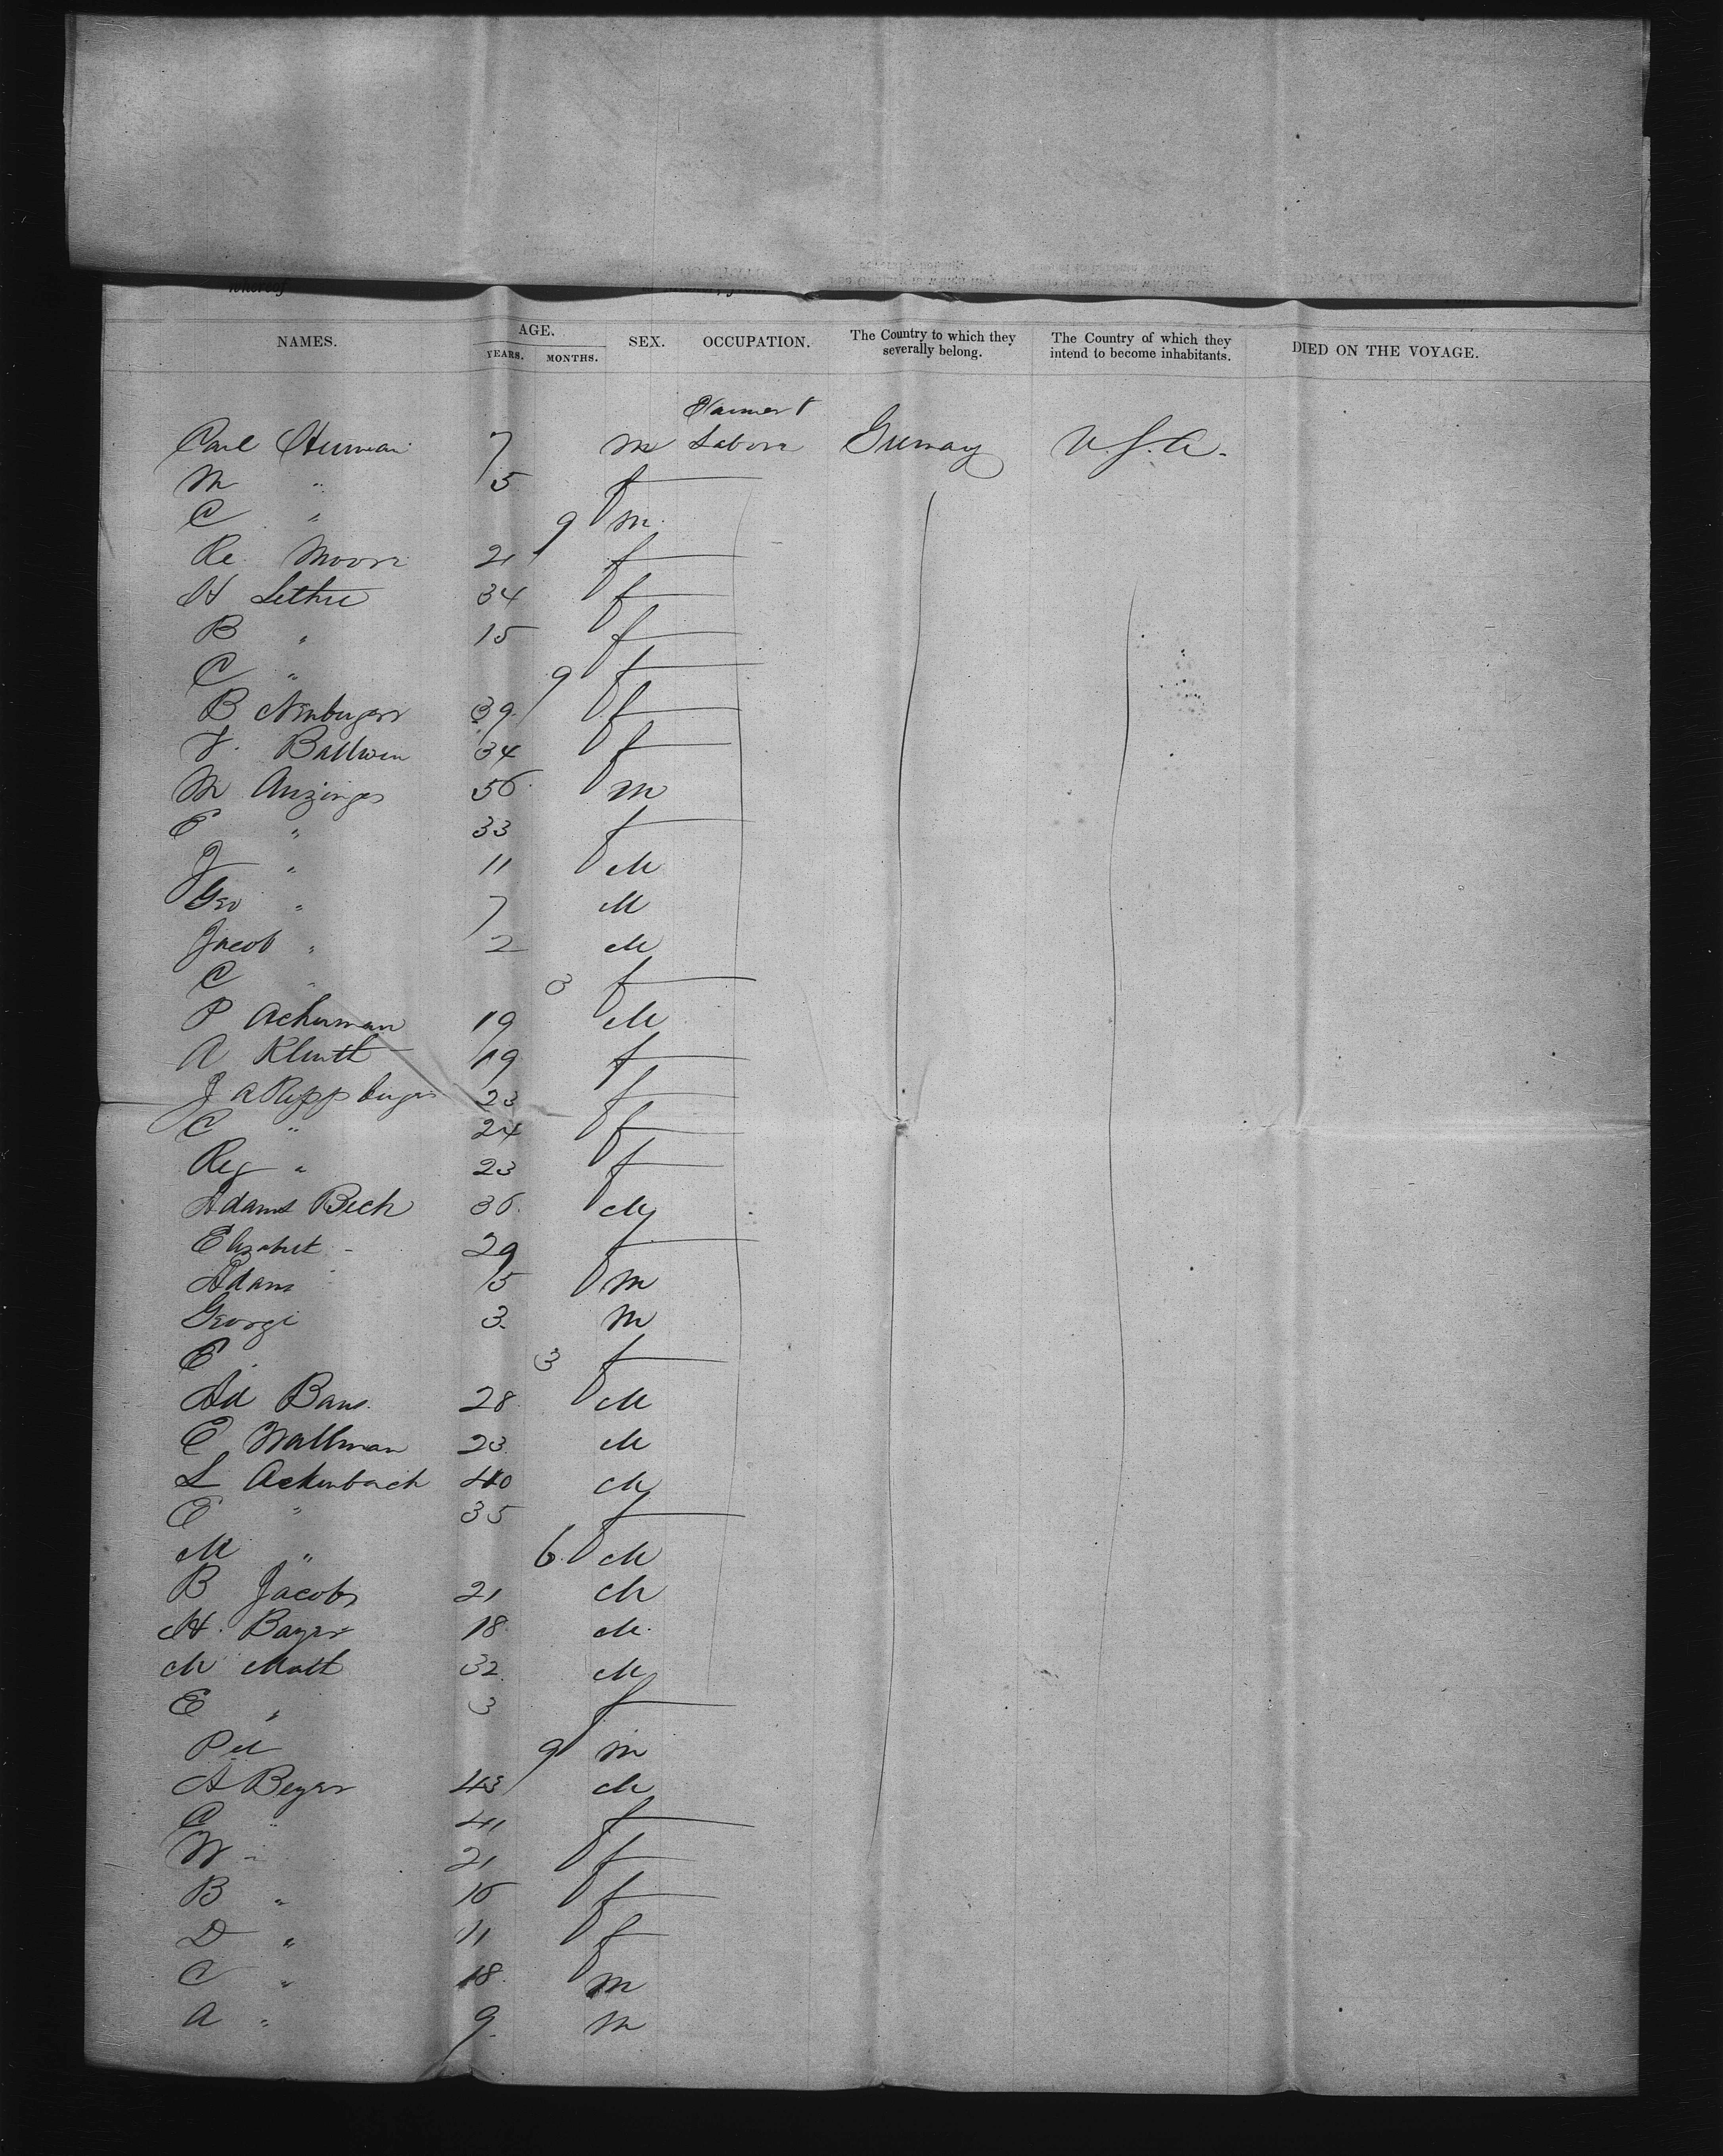 thereof
NAMES. AGE. SEX. OCCUPATION. The Country to which they severally belong. The Country of which they intend to become inhabitants. DIED ON THE VOYAGE.
YEARS. MONTHS.
Farmer &
Carl Herman 7 m Labore Germay U.S.A.
M " 5 f
C " 9 m
Re. Moore 21 f
H Lethre 34 f
B " 15 f
C " 9 f
B Nenburger 39 f
F. Ballwen 34 f
M Anzinger 36 m
E " 33 f
J " 11 M
Geo " 7 M
Jacob " 2 M
C " 3 f
P Acherman 19 M
A Kluth 19 f
J a Reppburger 23 f
C " 24 f
Reg " 23 f
Adams Bech 36 M
Elizabeth - 29 f
Adam 5 m
George 3 m
E " 3 f
Ad Baus 28 M
E Wallman 23 M
L Achenbach 40 M
E " 35 f
M " 6 M
B Jacobs 21 M
H. Bayer 18 M
M Matt 32 M
E " 3 f
Pet 9 m
A Beyer 43 M
C " 41 f
W " 21 f
B " 16 f
D " 11 f
C " 18 m
A " 9 m